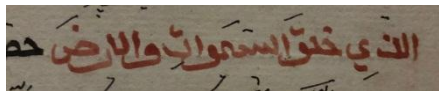 الذي خلق السموات والارض